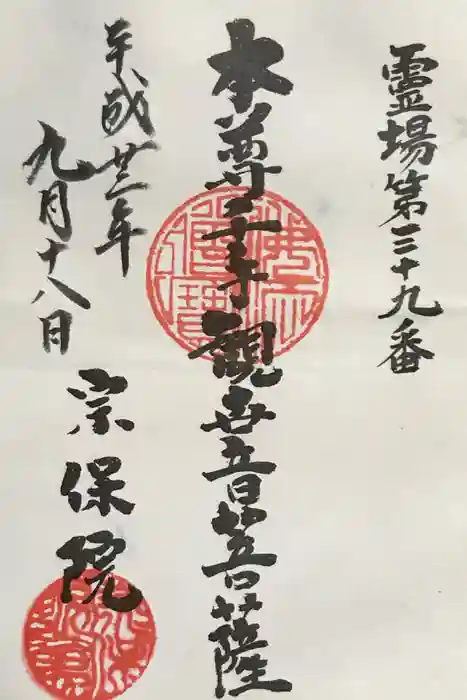 霊場第三十九番
本尊千手観世音菩薩
平成廿三年
九月十八日
宗保院